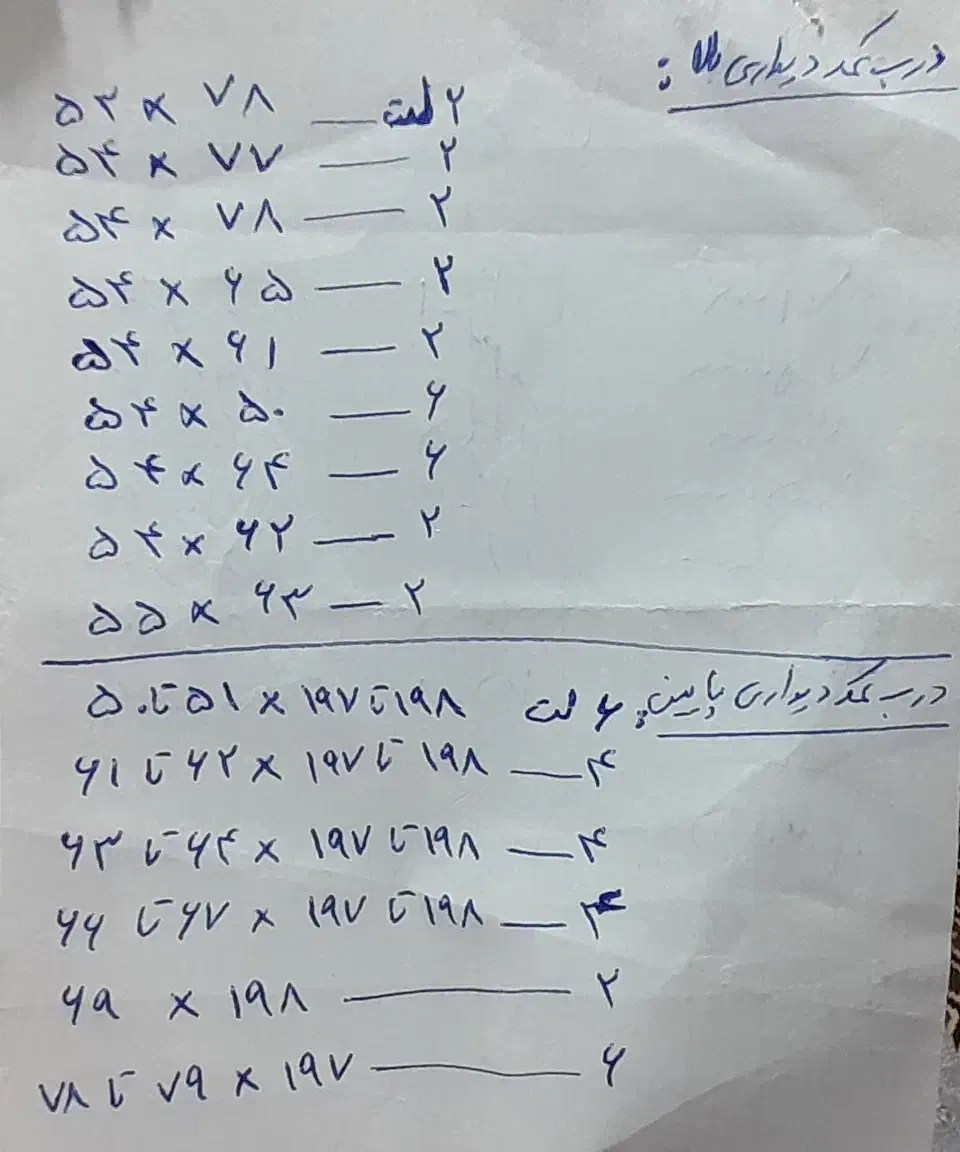 درب کمد دیواری بالا :
۵۳ × ۷۸ — ۲ لت
۵۴ × ۷۷ — ۲
۵۴ × ۷۸ — ۲
۵۴ × ۶۵ — ۲
۵۴ × ۶۱ — ۲
۵۴ × ۵۰ — ۶
۵۴ × ۶۴ — ۶
۵۴ × ۶۲ — ۲
۵۵ × ۶۳ — ۲
درب کمد دیواری پایین:
۵۰ تا ۵۱ × ۱۹۷ تا ۱۹۸ ۶ لت
۶۱ تا ۶۲ × ۱۹۷ تا ۱۹۸ — ۴
۶۳ تا ۶۴ × ۱۹۷ تا ۱۹۸ — ۴
۶۶ تا ۶۷ × ۱۹۷ تا ۱۹۸ — ۴
۶۹ × ۱۹۸ — ۲
۷۸ تا ۷۹ × ۱۹۷ — ۶